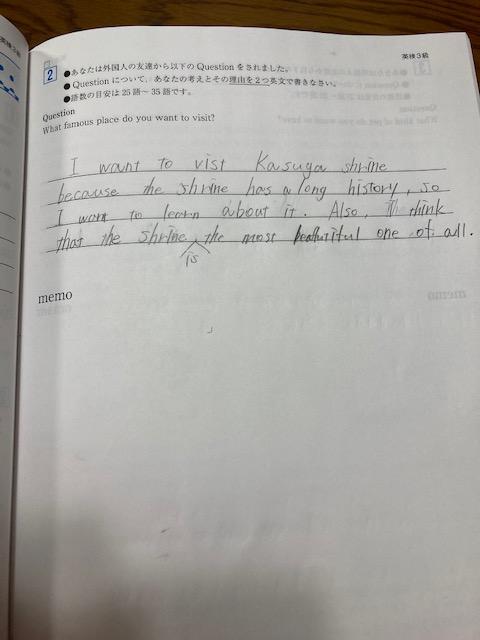 英検3級
2
●あなたは外国人の友達から以下の Question をされました。
●Question について、あなたの考えとその理由を2つ英文で書きなさい。
●語数の目安は25語～35語です。
Question
What famous place do you want to visit?
I want to vist Kasuga shrine
because the shrine has a long history, so
I want to learn about it. Also, I think
that the shrine the most beautiful one of all.
is
memo